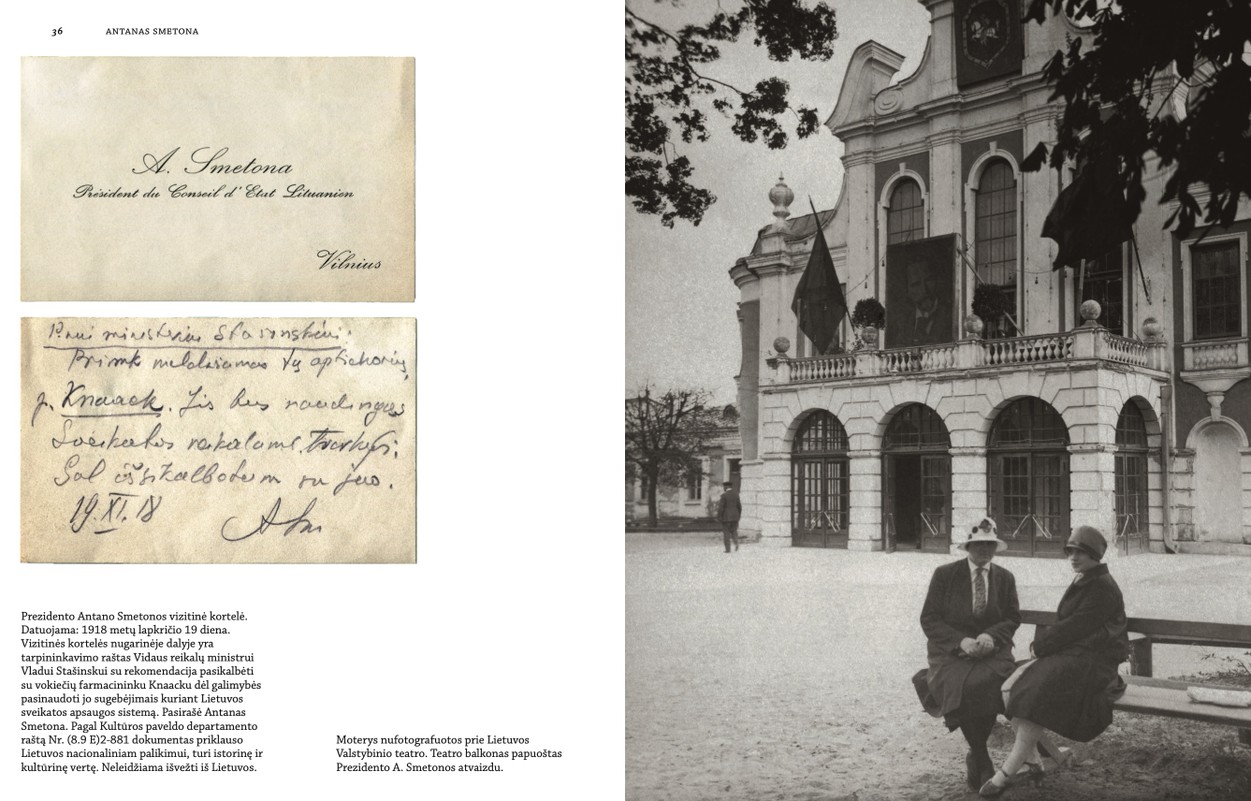 36 ANTANAS SMETONA
A. Smetona
Président du Conseil d'Etat Lituanien
Vilnius
Ponui ministeriui Stašinskiui.
Priimk meldžiamas tą aptiekorių,
p. Knaack. Jis bus naudingas
Sveikatos reikalams tvarkyti.
Gal išsikalbėtum su juo.
19.XI.18
Prezidento Antano Smetonos vizitinė kortelė.
Datuojama: 1918 metų lapkričio 19 diena.
Vizitinės kortelės nugarinėje dalyje yra
tarpininkavimo raštas Vidaus reikalų ministrui
Vladui Stašinskui su rekomendacija pasikalbėti
su vokiečių farmacininku Knaacku dėl galimybės
pasinaudoti jo sugebėjimais kuriant Lietuvos
sveikatos apsaugos sistemą. Pasirašė Antanas
Smetona. Pagal Kultūros paveldo departamento
raštą Nr. (8.9 E)2-881 dokumentas priklauso
Lietuvos nacionaliniam palikimui, turi istorinę ir
kultūrinę vertę. Neleidžiama išvežti iš Lietuvos.
Moterys nufotografuotos prie Lietuvos
Valstybinio teatro. Teatro balkonas papuoštas
Prezidento A. Smetonos atvaizdu.